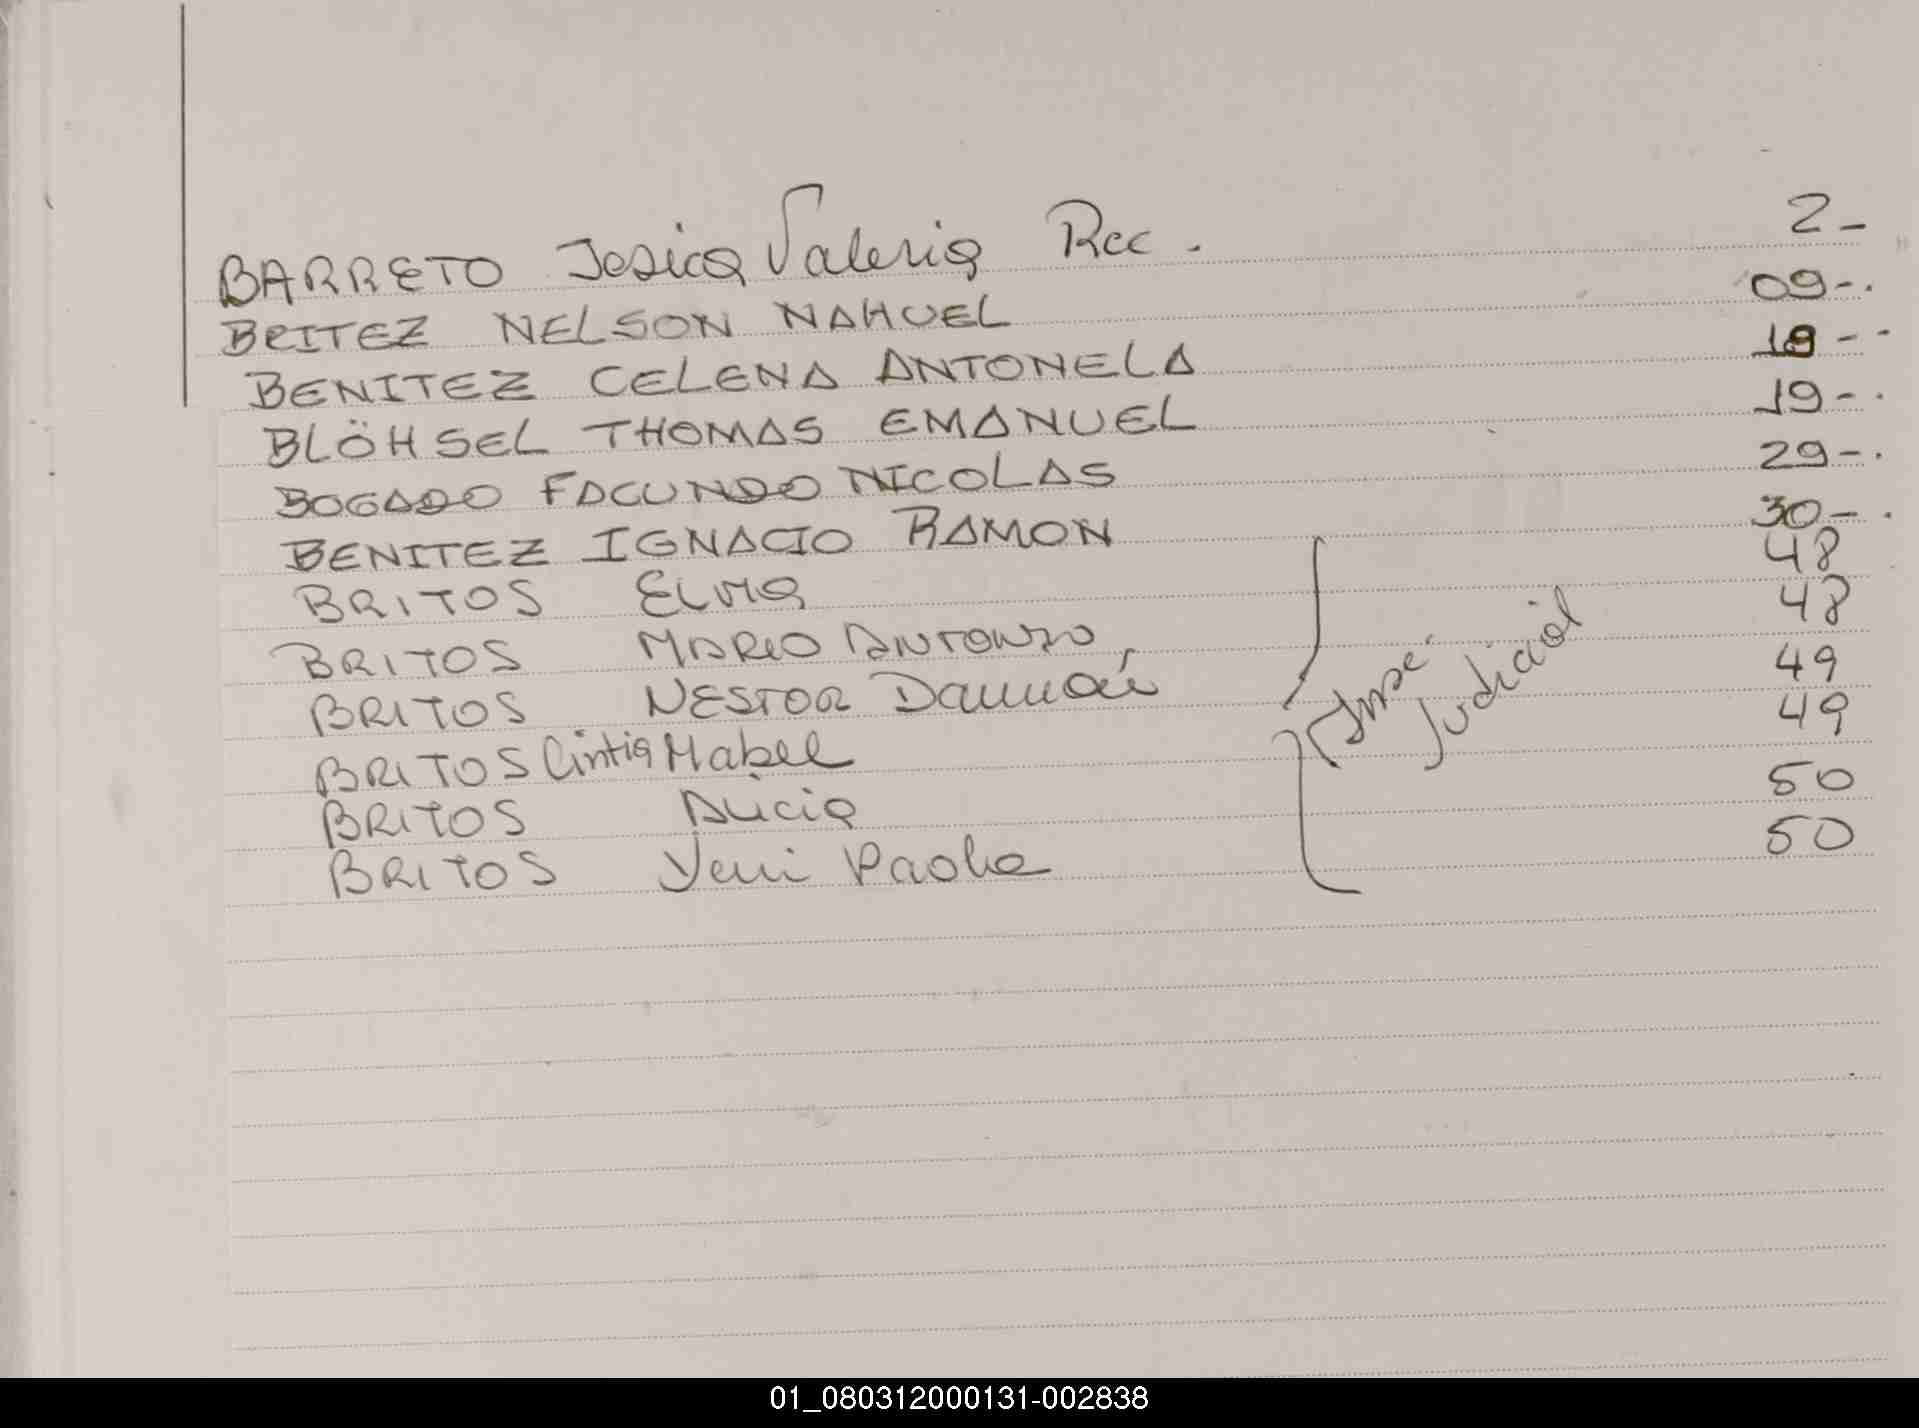 BARRETO Jesica Valeria Rec. 2-
BRITEZ NELSON NAHUEL 09-.
BENITEZ CELENA ANTONELA 18--
BLÖHSEL THOMAS EMANUEL 19-.
BOGADO FACUNDO NICOLAS 29-.
BENITEZ IGNACIO RAMON 30-.
BRITOS ELMA 48
BRITOS MARIO ANTONIO 48
BRITOS NESTOR Damián 49
BRITOS Cintia Mabel 49
BRITOS Alicia 50
BRITOS Yeni Paola 50
Judicial
01_080312000131-002838